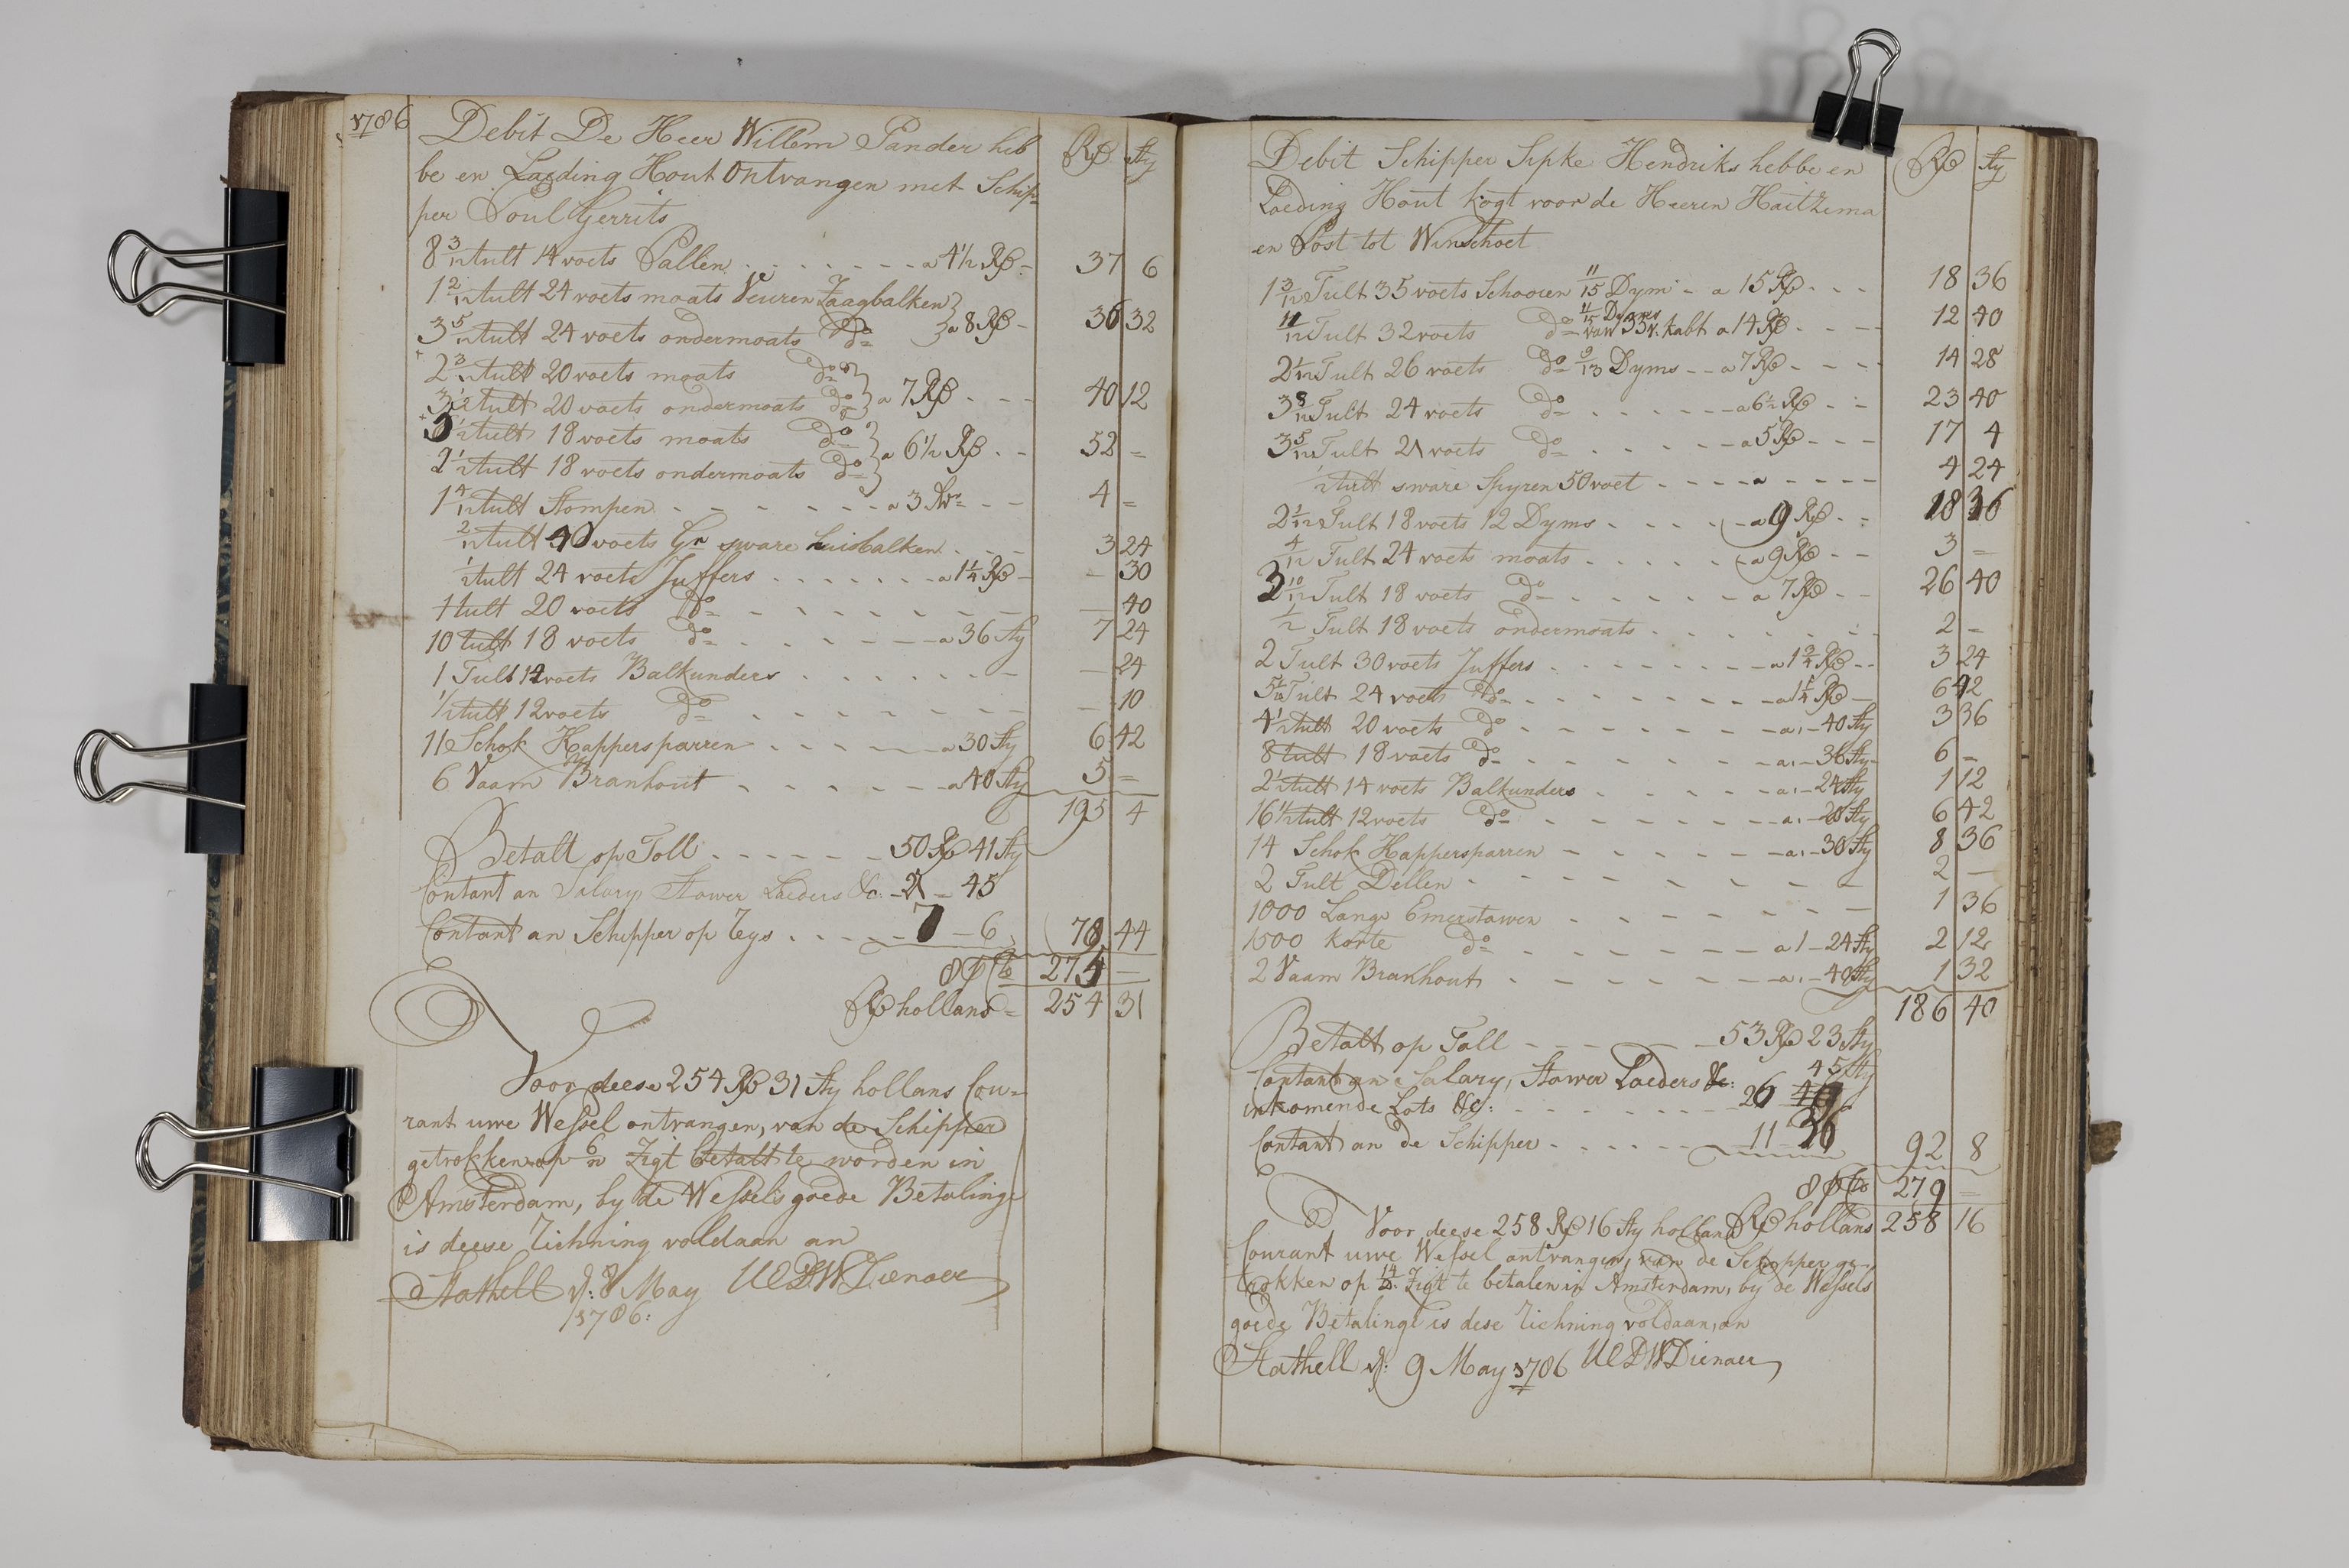 1786
Debit De Heer Willem Pander heb
be en Laeding Hout Ontvangen met Schip=
per Poul Gerrits
R# Sty
8 3/12 tult 14 voets Pallen a 4 1/2 R# 37 6
1 2/12 tult 24 voets moats Veuren Zaagbalken
3 5/12 tult 24 voets ondermoats do a 8 R# 36 32
2 3/12 tult 20 voets moats do
tult 20 voets ondermoats do a 7 R# 40 12
tult 18 voets moats do
2 1/2 tult 18 voets ondermoats do a 6 1/2 R# 52 =
1 4/12 tult Stompen a 3 4 =
2/12 tult 40 voets Gr sware huisbalken 3 24
1/2 tult 24 voets Juffers a 1 1/4 R# - 30
1 tult 20 voets do — 40
10 tult 18 voets do a 36 Sty 7 24
1 Tult 14 voets Balkunders — 24
1/2 tult 12 voets do — 10
11 Schok Happersparren a 30 Sty 6 42
6 Vaam Branhout a 40 Sty 5 =
195 4
Betalt op Toll 50 R# 41 Sty
Contant an Salary Stower Laeders &c. 21 - 45
Contant an Schipper op Reys 7 - 6 78 44
8 pCto 274 —
R# hollans = 254 31
Voor deese 254 R# 31 Sty hollans Cou=
rant uwe Wessel ontvangen, van de Schipper
getrokken op 6/m Zigt betalt te worden in
Amsterdam, by de Wessels goede Betalinge
is deese Richning voldaan an
Stathell d: 8 May UEDWDienaer
1786:
Debit Schipper Sipke Hendriks hebbe en
Laeding Hout kogt voor de Heeren Haitzema
en Post tot Winschoet
R# Sty
1 3/12 Tult 35 voets Schooren 11/15 Dym - a 15 R# 18 36
11/12 Tult 32 voets do 11/15 Dyms van 33 v. kabt a 14 R# 12 40
2 1/12 Tult 26 voets do 9/13 Dyms a 7 R# 14 28
3 8/12 Tult 24 voets do a 6 1/2 R# 23 40
3 5/12 Tult 21 voets do a 5 R# 17 4
1/2 tult sware Spyren 50 voet a 4 24
2 1/12 Tult 18 voets 12 Dyms a 9 R# 18 36
4/12 Tult 24 voets moats a 9 R# 3 =
3 10/12 Tult 18 voets do a 7 R# 26 40
1/2 Tult 18 voets ondermoats 2 =
2 Tult 30 voets Juffers a 1 3/4 R# 3 24
5 1/2 Tult 24 voets do a 1 1/4 R# 6 42
4 1/2 tult 20 voets do a - 40 Sty 3 36
8 tult 18 voets do a - 36 Sty 6 =
2 1/2 tult 14 voets Balkunders a - 24 Sty 1 12
16 1/2 tult 12 voets do a - 20 Sty 6 42
14 Schok Happersparren a - 30 Sty 8 36
2 Tult Dellen 2 —
1000 Lange Emerstawen 1 36
1500 korte do a 1 - 24 Sty 2 12
2 Vaam Branhout a - 40 Sty 1 32
186 40
Betalt op Toll 53 R# 23 Sty
Contant an Salary, Stower Laeders &c: 45 Sty
inkomende Lots &c: 26
Contant an de Schipper 11 36 92 8
8 pCto 279 =
R# hollans 258 16
Voor deese 258 R# 16 Sty holland
Courant uwe Wessel ontvangen, van de Schipper ge=
trokken op 14/d: Zigt te betalen in Amsterdam, by de Wessels
goede Betalinge is dese Richning voldaan, an
Stathell d: 9 May 1786 UEDWDienaer